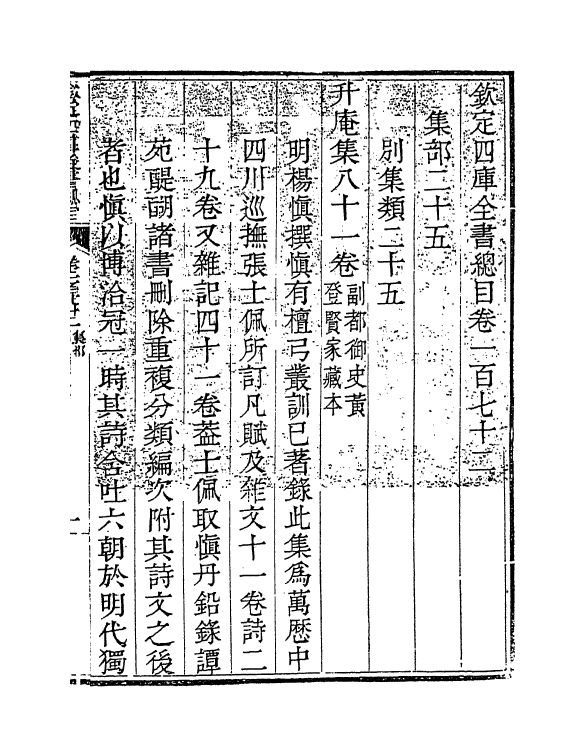 欽定四庫全書總目卷一百七十二
集部二十五
別集類二十五
升庵集八十一卷副都御史黃登賢家藏本
明楊愼撰愼有檀弓叢訓已著錄此集爲萬歴中
四川巡撫張士佩所訂凡賦及雜文十一卷詩二
十九卷又雜記四十一卷葢士佩取愼丹鉛錄譚
苑醍醐諸書刪除重複分類編次附其詩文之後
者也愼以博洽冠一時其詩含吐六朝於明代獨